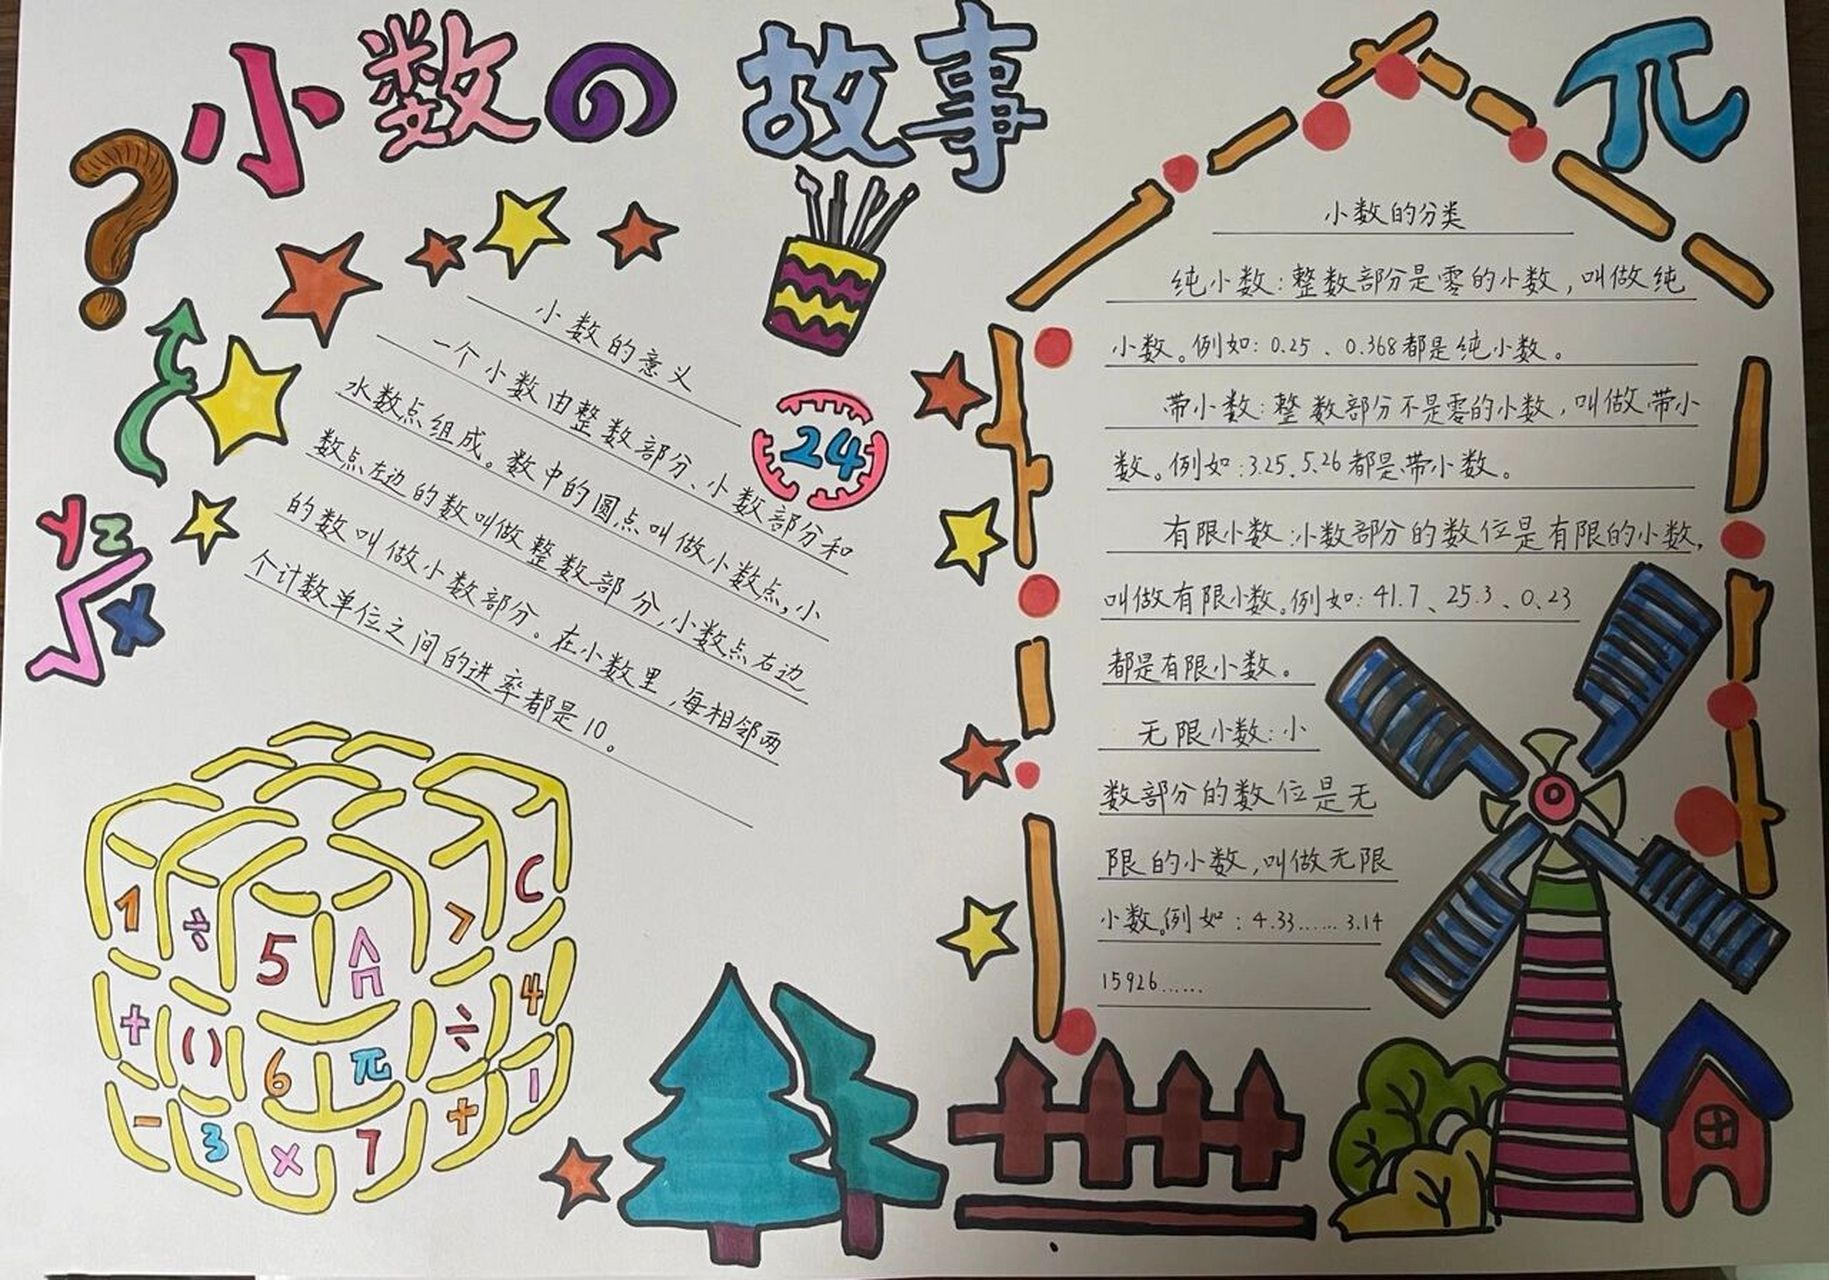 小数の故事
π
小数的意义
一个小数由整数部分、小数部分和
水数点组成。数中的圆点叫做小数点,小
数点左边的数叫做整数部分,小数点右边
的数叫做小数部分。在小数里,每相邻两
个计数单位之间的进率都是10。
24
y z
√x
1 ÷ 5 > C
+ () 6 π ÷ 4
- 3 × 7 + 1
小数的分类
纯小数:整数部分是零的小数,叫做纯
小数。例如:0.25、0.368都是纯小数。
带小数:整数部分不是零的小数,叫做带小
数。例如:3.25、5.26都是带小数。
有限小数:小数部分的数位是有限的小数,
叫做有限小数。例如:41.7、25.3、0.23
都是有限小数。
无限小数:小
数部分的数位是无
限的小数,叫做无限
小数。例如:4.33......3.14
15926......